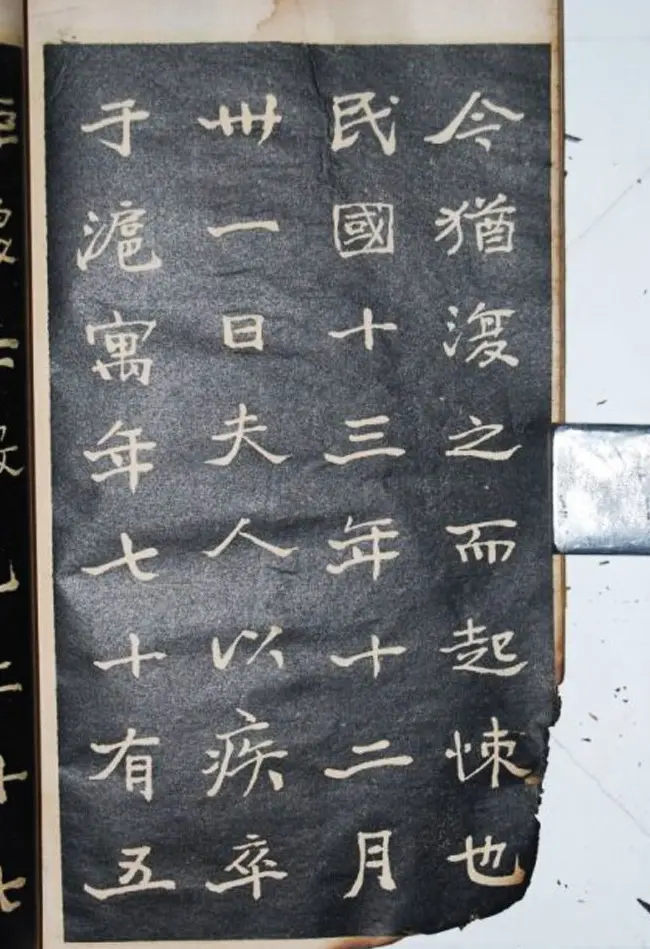 今猶復之而起悚也
民國十三年十二月
卅一日夫人以疾卒
于滬寓年七十有五